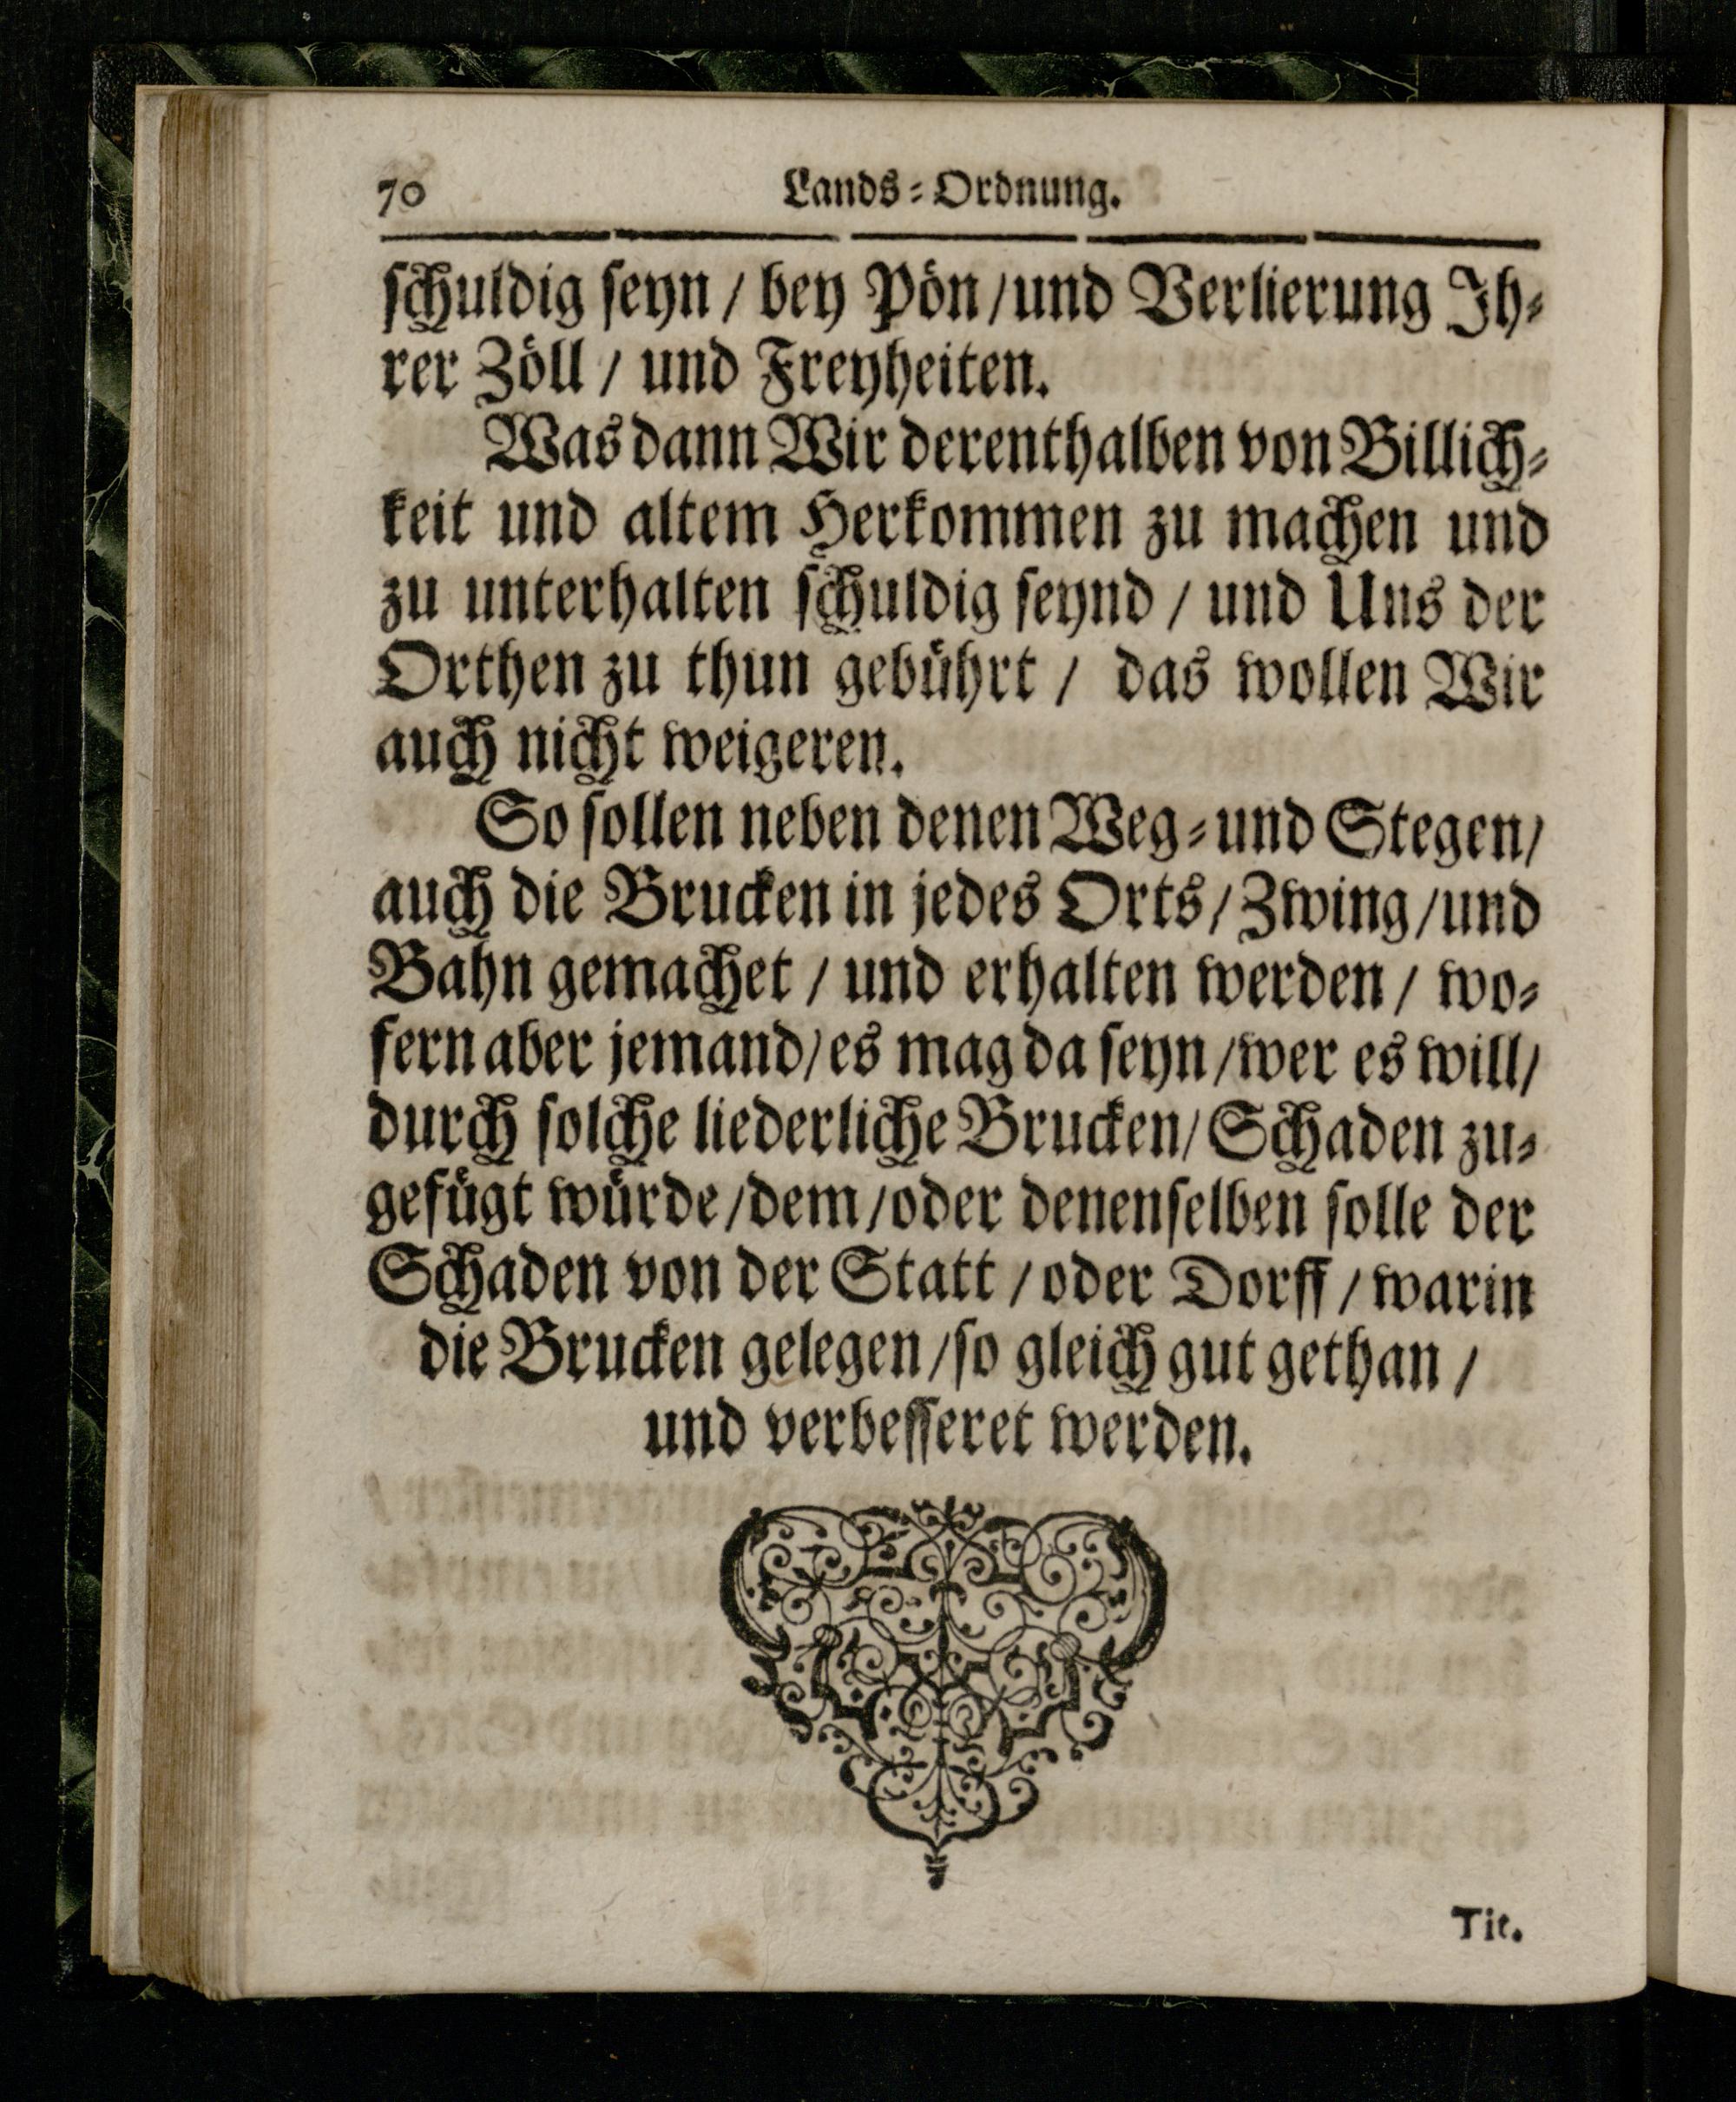 70 Lands-Ordnung.
schuldig seyn / bey Pön / und Verlierung Ih-
rer Zöll / und Freyheiten.
Was dann Wir derenthalben von Billich-
keit und altem Herkommen zu machen und
zu unterhalten schuldig seynd / und Uns der
Orthen zu thun gebührt / das wollen Wir
auch nicht weigeren.
So sollen neben denen Weg- und Stegen /
auch die Brucken in jedes Orts / Zwing / und
Bahn gemachet / und erhalten werden / wo-
fern aber jemand / es mag da seyn / wer es will /
durch solche liederliche Brucken / Schaden zu-
gefügt würde / dem / oder denenselben solle der
Schaden von der Statt / oder Dorff / warin
die Brucken gelegen / so gleich gut gethan /
und verbesseret werden.
Tit.